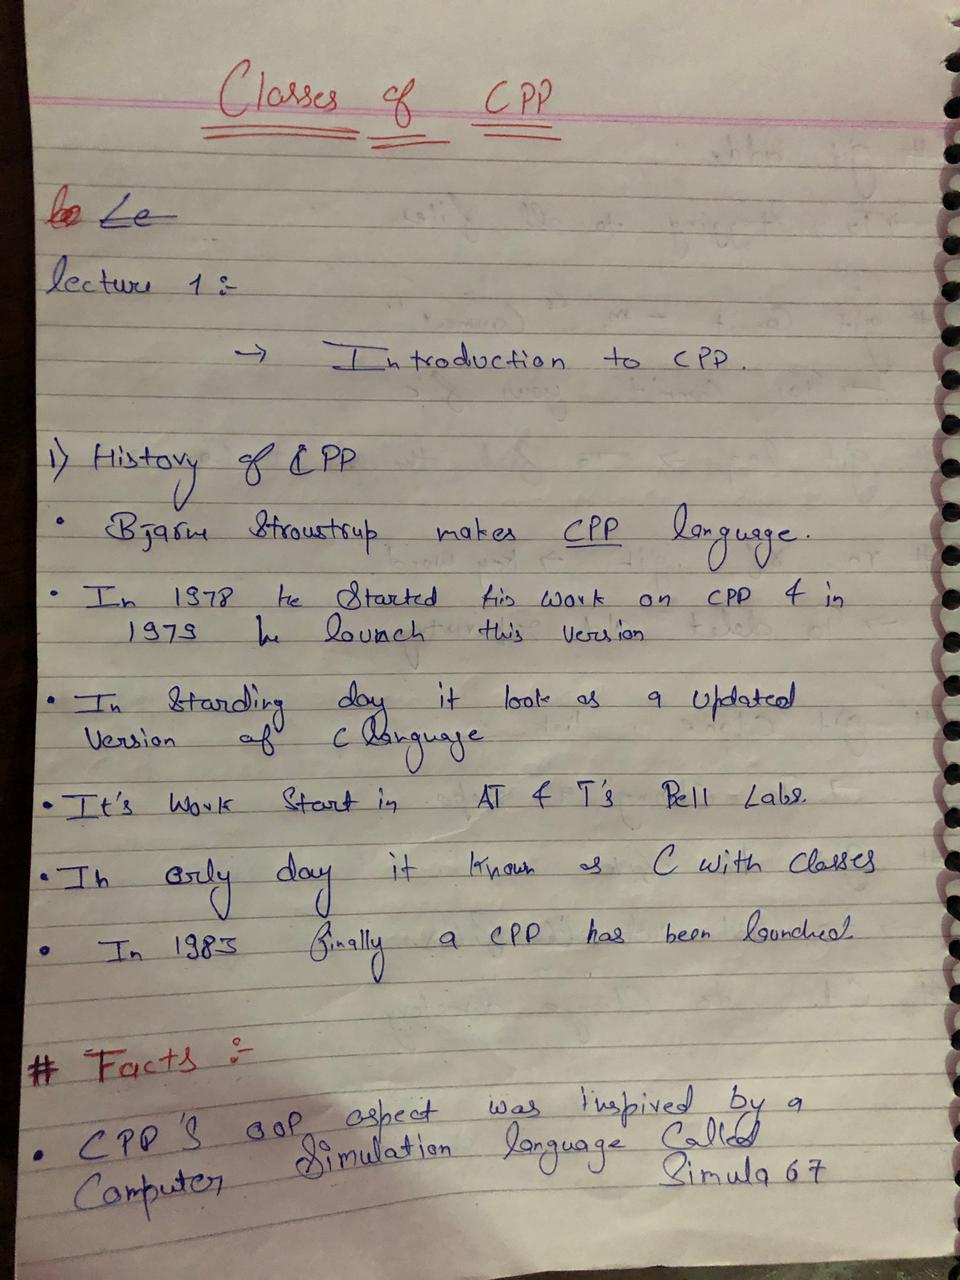 Classes of CPP
Le
lecture 1 :-
→ Introduction to CPP.
1) History of CPP
• Bjarne Stroustrup makes CPP language.
• In 1978 he Started his work on CPP & in
1979 he launch this version
• In Starding day it look as a updated
Version of C language
• It's Work Start in AT & T's Bell Labs.
• In erly day it known as C with Classes
• In 1983 finally a CPP has been launched
# Facts :-
• CPP'S OOP aspect was inspired by a
Computer Simulation language Called
Simula 67